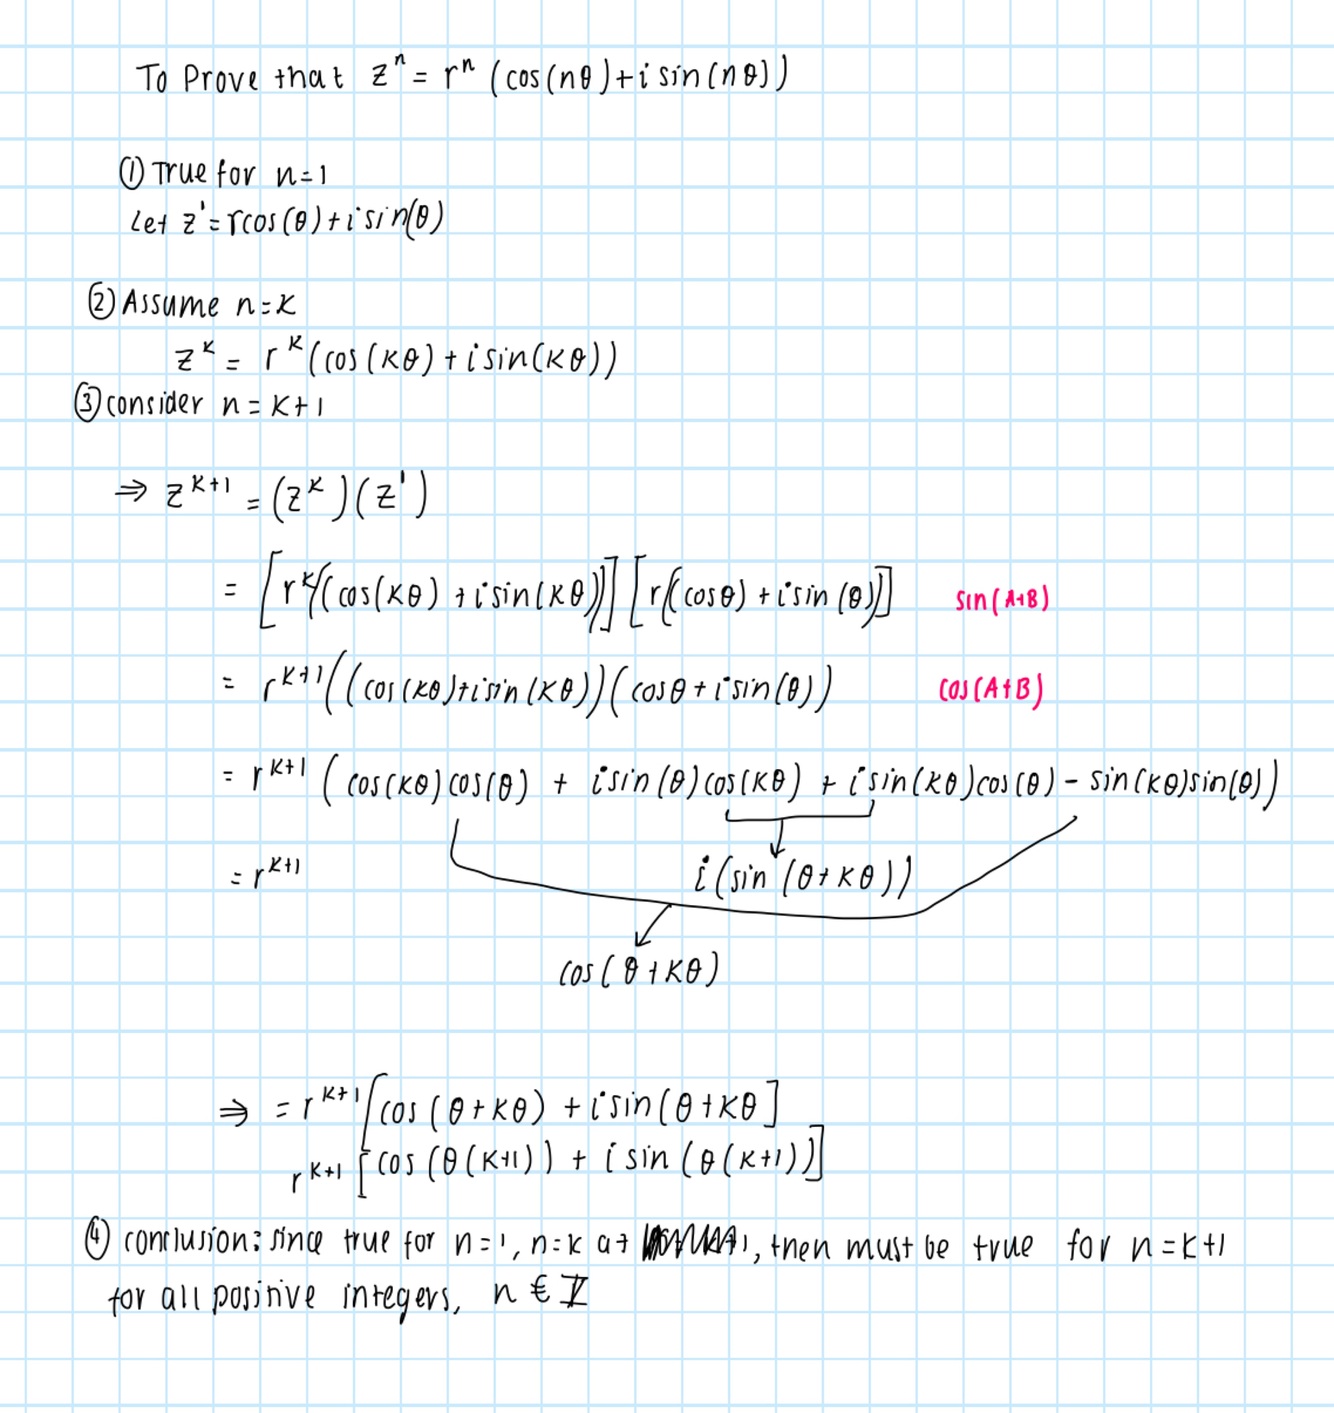 To Prove that zⁿ = rⁿ (cos(nθ)+i sin(nθ))
① True for n=1
Let z¹=rcos(θ)+isin(θ)
② Assume n=k
zᵏ = rᵏ(cos(kθ)+isin(kθ))
③ consider n=k+1
⇒ zᵏ⁺¹ = (zᵏ)(z¹)
= [rᵏ(cos(kθ)+isin(kθ))] [r((cosθ)+isin(θ))] sin(A+B)
= rᵏ⁺¹((cos(kθ)+isin(kθ))(cosθ+isin(θ)) cos(A+B)
= rᵏ⁺¹ (cos(kθ)cos(θ) + isin(θ)cos(kθ) + isin(kθ)cos(θ) - sin(kθ)sin(θ))
= rᵏ⁺¹ i(sin(θ+kθ))
cos(θ+kθ)
⇒ = rᵏ⁺¹[cos(θ+kθ)+isin(θ+kθ]
rᵏ⁺¹ [cos(θ(k+1)) + i sin(θ(k+1))]
④ conclusion: since true for n=1, n=k at , then must be true for n=k+1
for all positive integers, n ∈